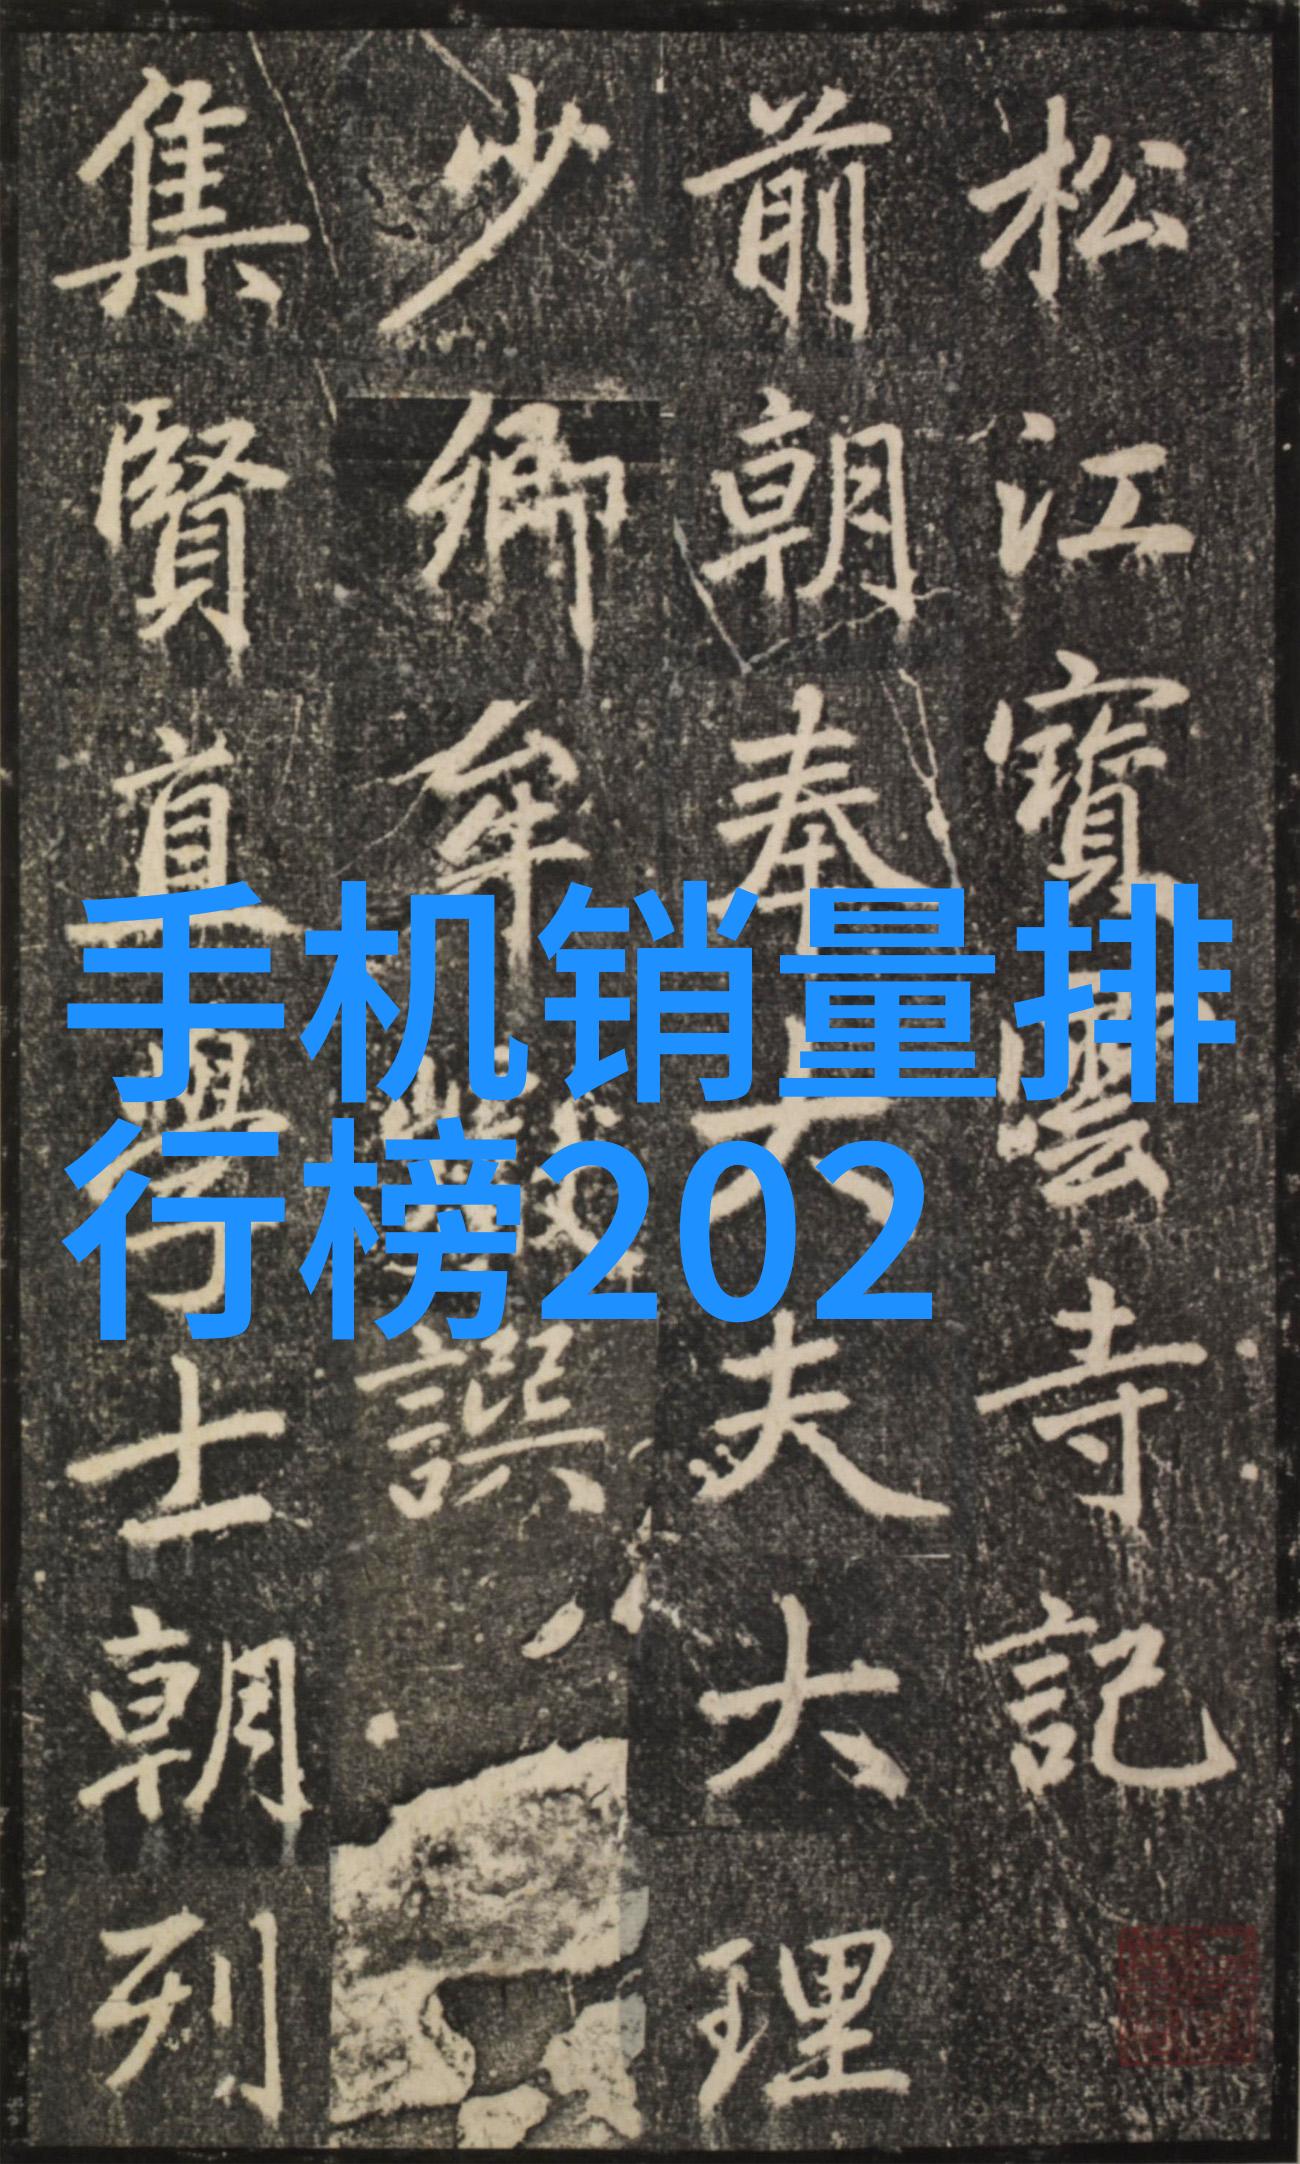 松江寳雲寺記
前朝奉大夫大理
少卿牟巘譔
集賢直學士朝列
手机销量排
行榜202